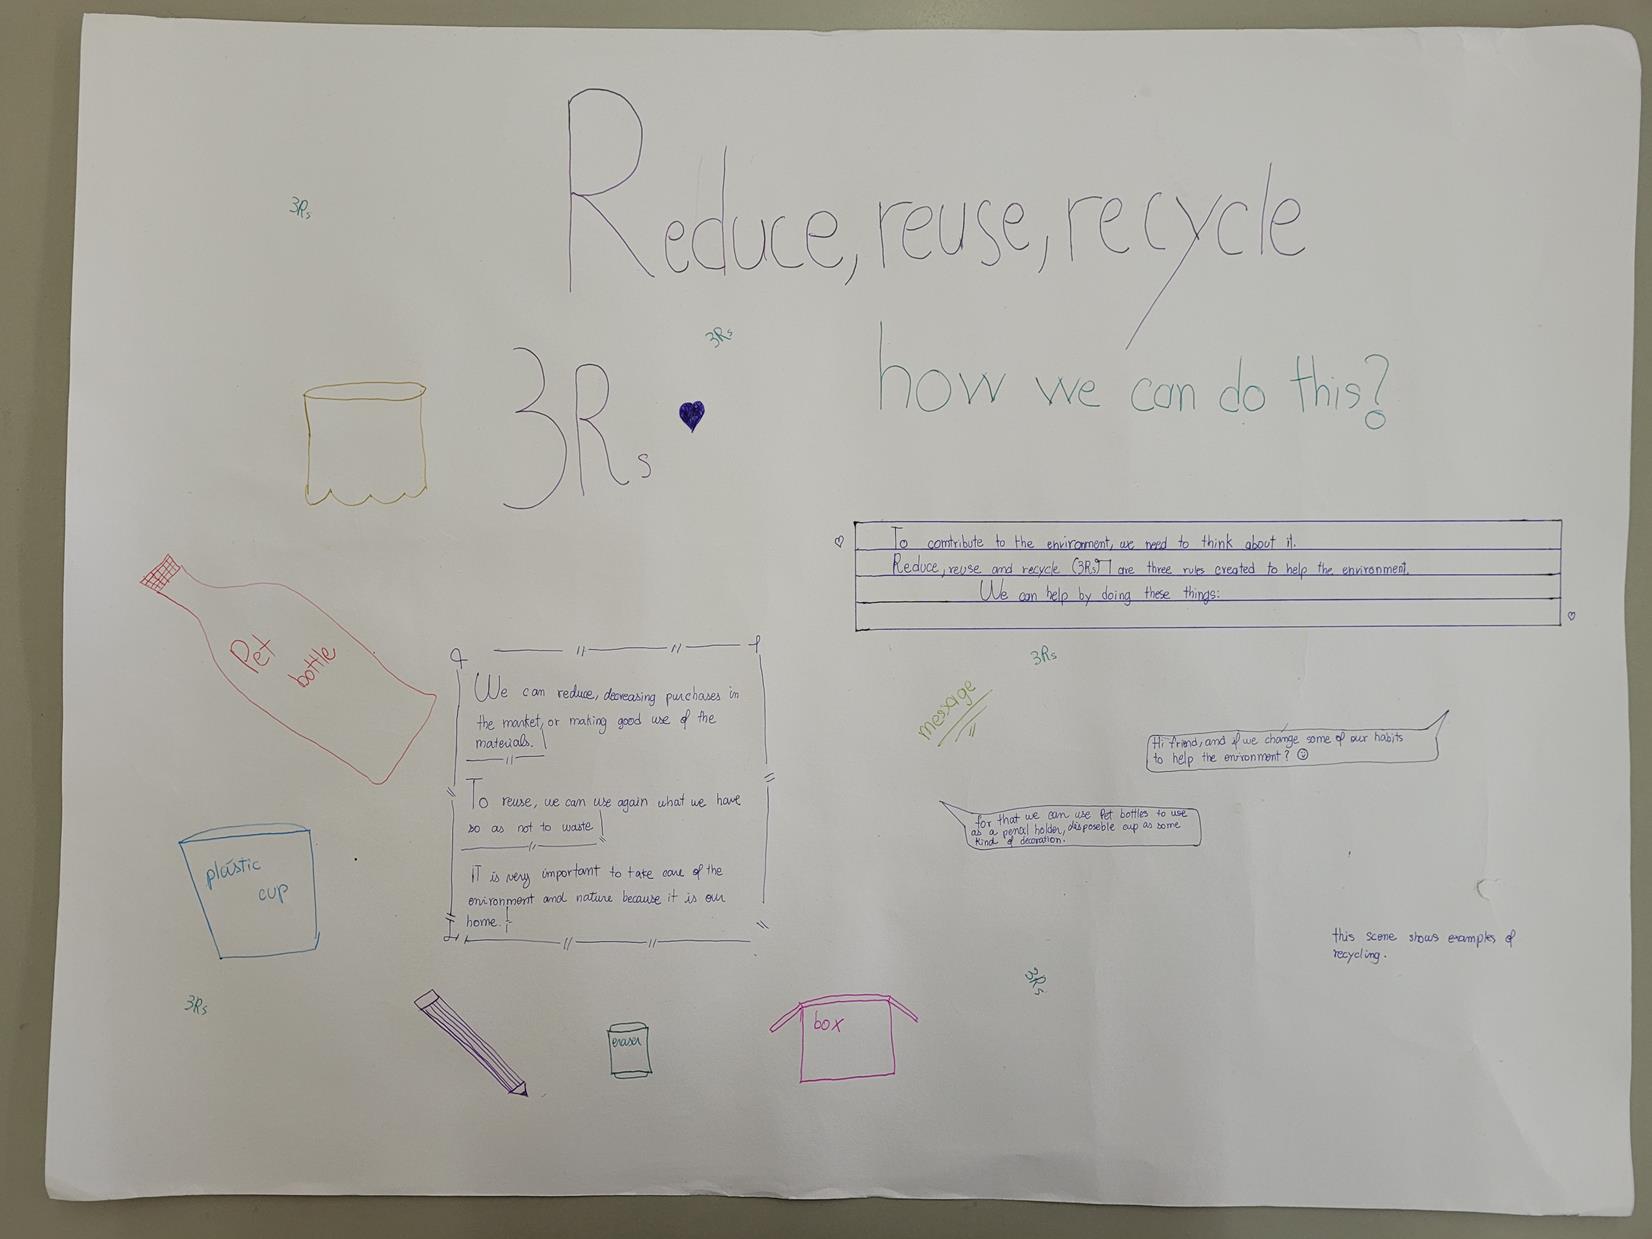 Reduce, reuse, recycle
3Rs
3Rs
3Rs
how we can do this?
To comtribute to the environment, we need to think about it.
Reduce, reuse and recycle (3Rs) are three rules created to help the environment.
We can help by doing these things:
Pet
bottle
We can reduce, decreasing purchases in
the market, or making good use of the
materials.
To reuse, we can use again what we have
so as not to waste
IT is very important to take care of the
environment and nature because it is our
home.
3Rs
message
Hi friend, and if we change some of our habits
to help the environment?
for that we can use Pet bottles to use
as a pencil holder, disposeble cup as some
kind of decoration.
plástic
cup
this scene shows examples of
recycling.
3Rs
3Rs
eraser
box